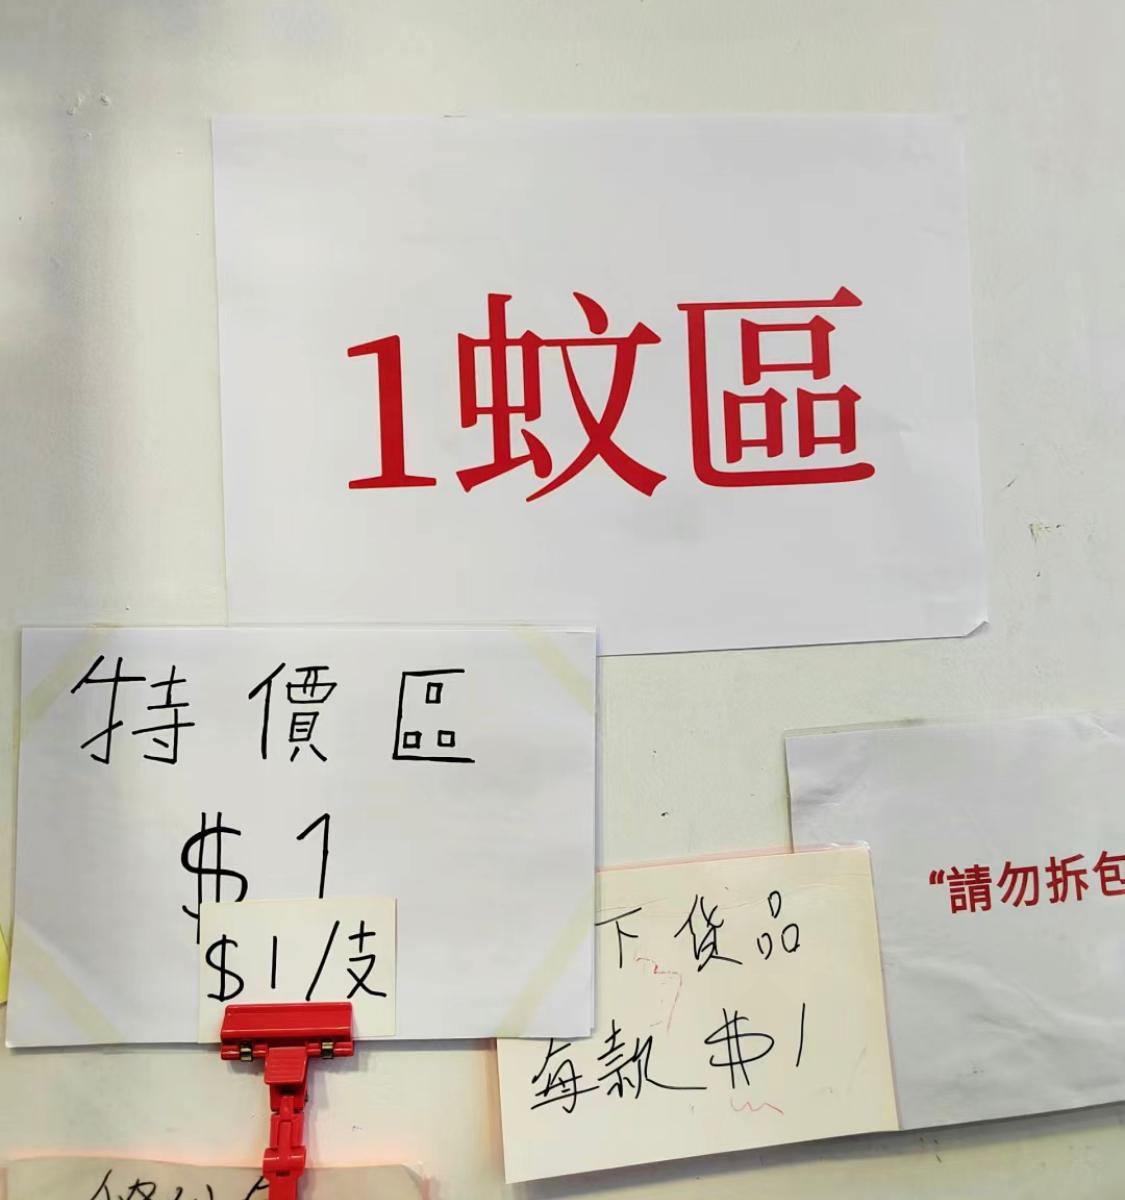 1蚊區
特價區
$1
$1/支
下貨品
每款 $1
“請勿拆包